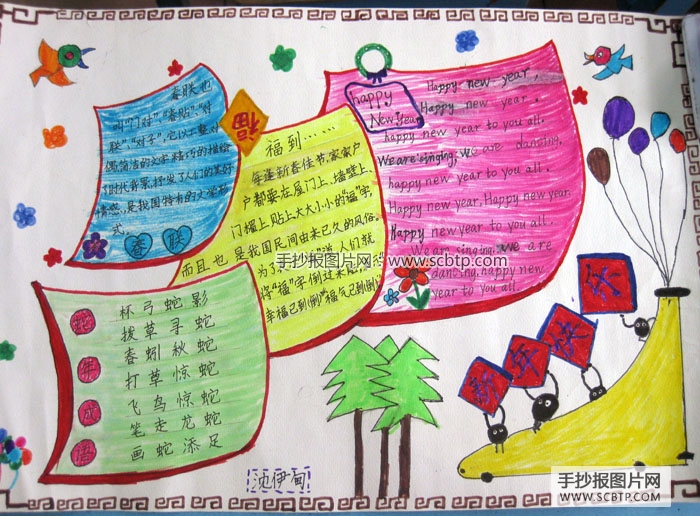 春联也
叫"门对"、"春贴"、"对
联"、"对子",它以工整、对
偶、简洁、精巧的描绘
时代背景,抒发了人们的美好
情感,是我国特有的文学形
式。
春联
福
福到……
每逢新春佳节,家家户
户都要在屋门上、墙壁上、
门楣上贴上大大小小的"福"字,
而且也是我国民间由来已久的风俗。
为了 人们就
将"福"字倒过来
幸福已到(倒)"福气已到(倒)"
happy
New Year
Happy new year,
Happy new year.
happy new year to you all.
We are singing, we are dancing,
happy new year to you all.
Happy new year, Happy new year,
Happy new year to you all.
We are singing, we are
dancing, happy new
year to you all.
蛇年成语
杯弓蛇影
拨草寻蛇
春蚓秋蛇
打草惊蛇
飞鸟惊蛇
笔走龙蛇
画蛇添足
新年快乐
沈伊甸
手抄报图片网
www.scbtp.com
手抄报图片网
www.scbtp.com
手抄报图片网
WWW.SCBTP.COM